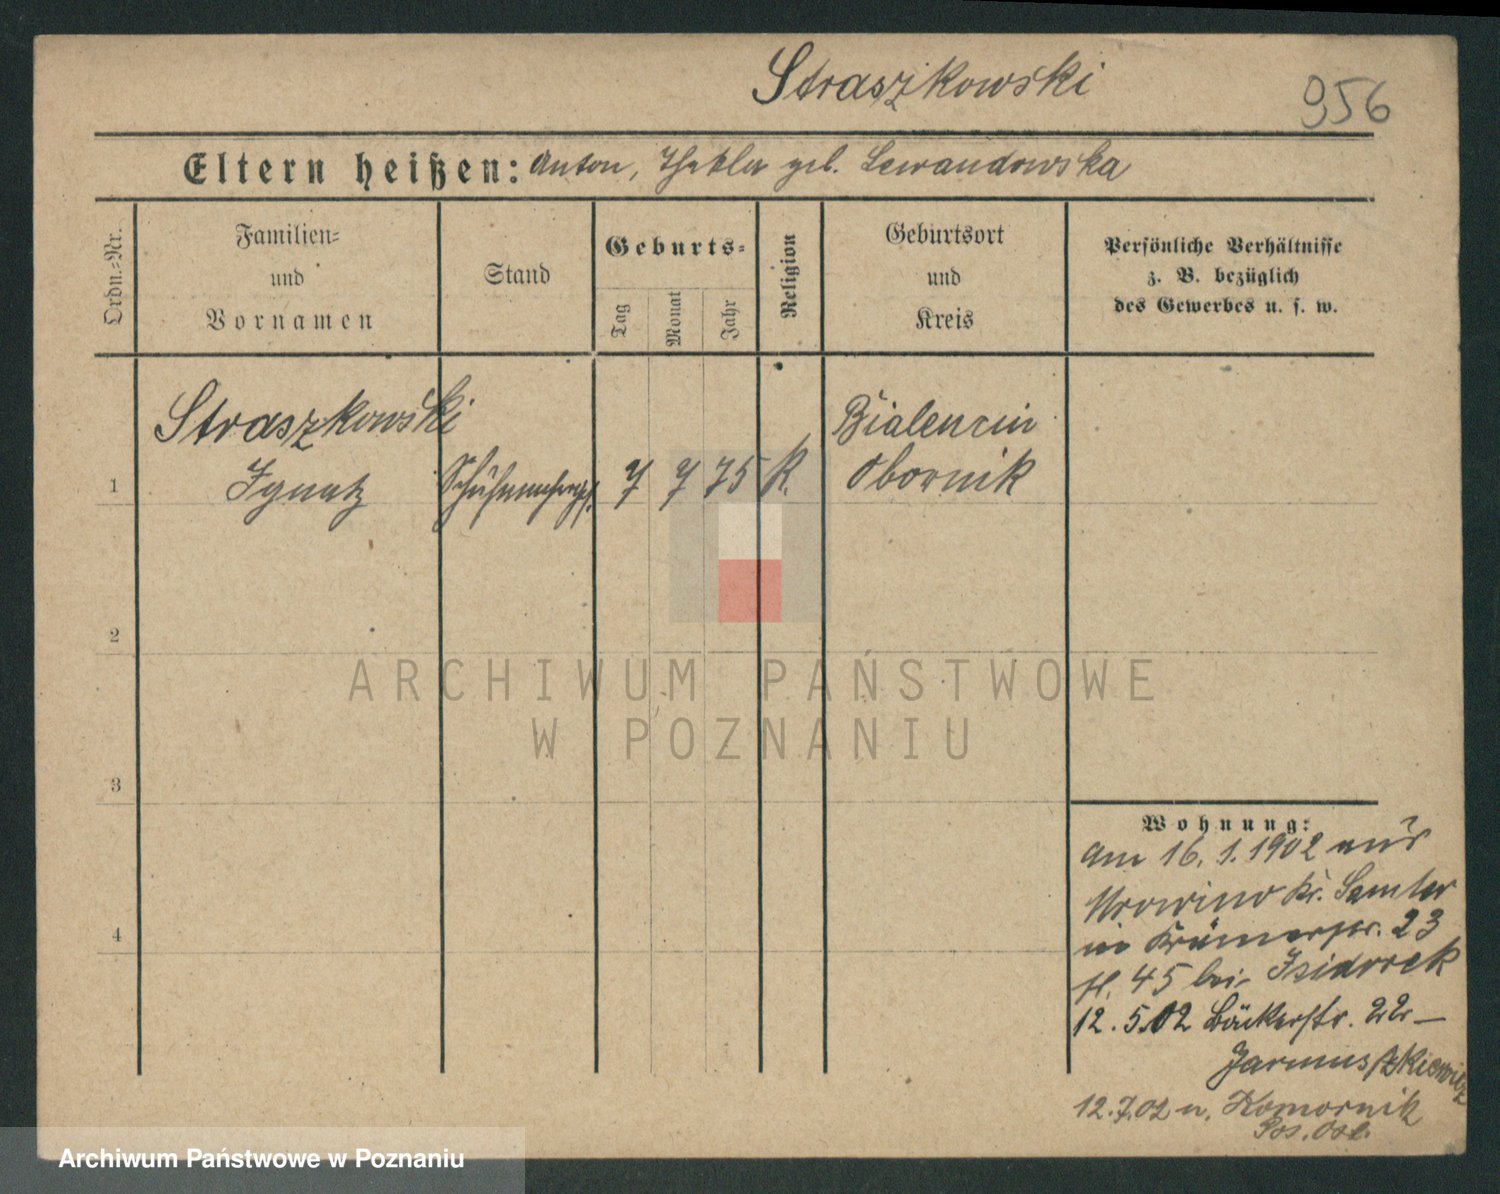 Straszkowski
956
Eltern heißen: Anton, Thekla geb. Lewandowska
Ordn.-Nr.
Familien-
und
Vornamen
Stand
Geburts-
Tag
Monat
Jahr
Religion
Geburtsort
und
Kreis
Persönliche Verhältnisse
z. B. bezüglich
des Gewerbes u. s. w.
Straszkowski
Bialenczin
1 Ignatz 7 7 75 K. Obornik
2
3
4
ARCHIWUM PAŃSTWOWE
W POZNANIU
Wohnung:
Am 16. 1. 1902 aus
Kr. Samter
in Krämerstr. 23
H. 45 bei Isidorek
12. 5. 02 Bäckerstr. 22 –
Jarmuszkiewicz
12. 7. 02 n. Komornik
Pos. Ost.
Archiwum Państwowe w Poznaniu